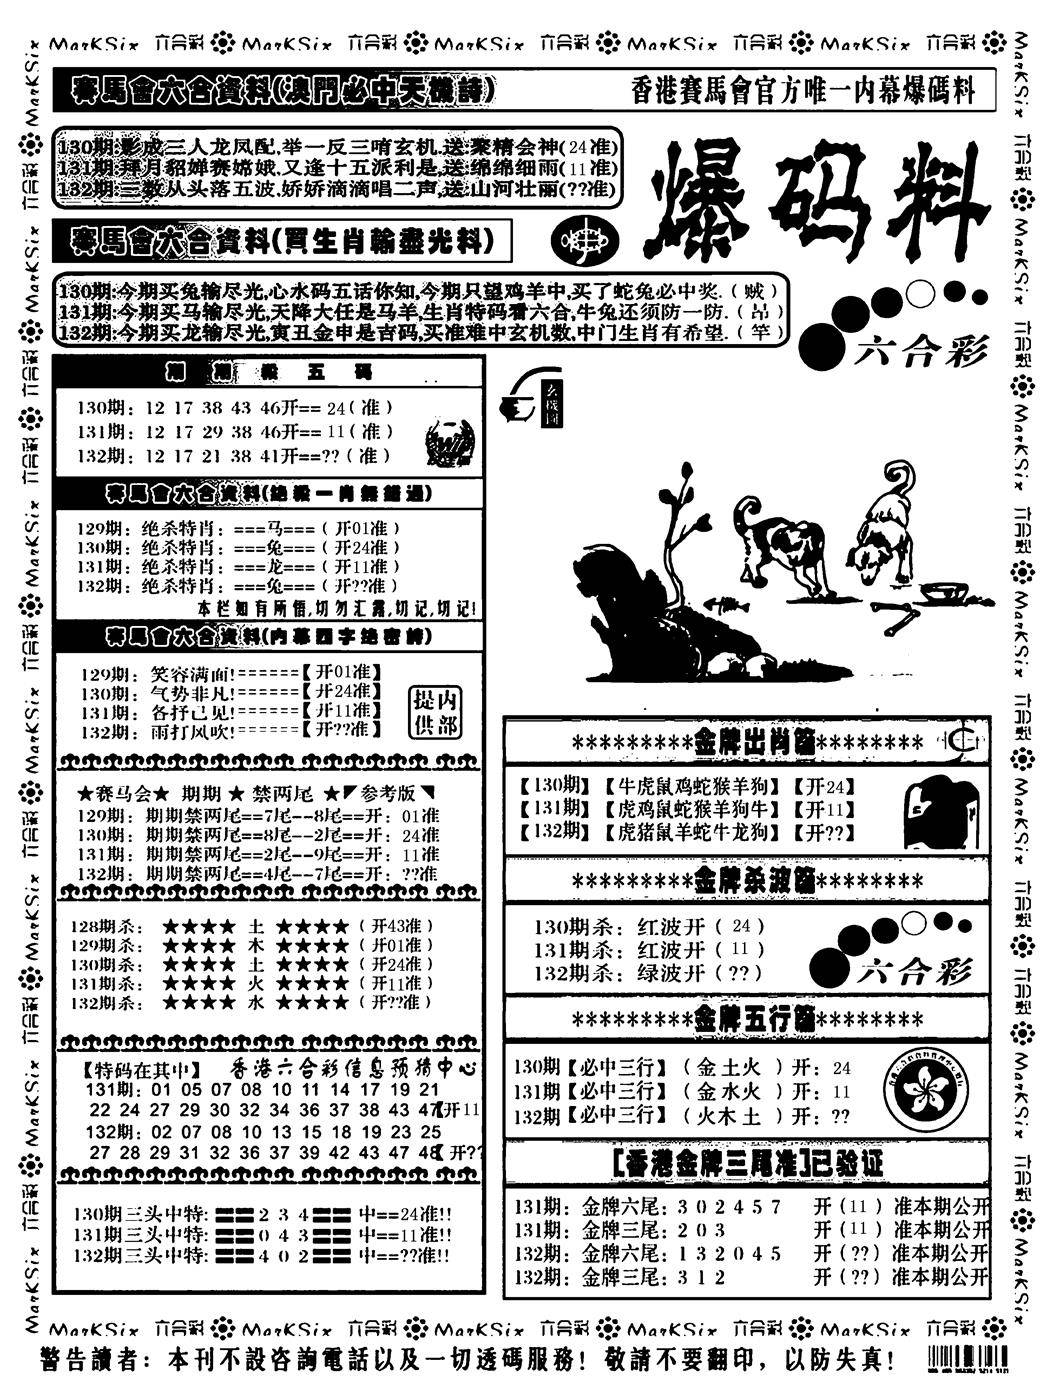 MarKSix 六合彩 MarKSix 六合彩 MarKSix 六合彩 MarKSix 六合彩 MarKSix 六合彩
賽馬會六合資料(澳門必中天機詩)
香港賽馬會官方唯一内幕爆碼料
130期:影成三人龙凤配,举一反三哨玄机.送:聚精会神(24准)
131期:拜月貂婵赛嫦娥.又逢十五派利是,送:绵绵细雨(11准)
132期:三数从头落五波.娇娇滴滴唱二声,送:山河壮丽(??准)
爆码料
賽馬會六合資料(買生肖輸盡光料)
130期:今期买兔输尽光,心水码五话你知,今期只望鸡羊中,买了蛇兔必中奖.(贼)
131期:今期买马输尽光,天降大任是马羊,生肖特码看六合,牛兔还须防一防.(昂)
132期:今期买龙输尽光,寅丑金申是吉码,买准难中玄机数,中门生肖有希望.(竿)
六合彩
期期殺五碼
130期: 12 17 38 43 46开==24(准)
131期: 12 17 29 38 46开==11(准)
132期: 12 17 21 38 41开==??(准)
玄機圖
賽馬會六合資料(绝殺一肖無錯過)
129期: 绝杀特肖: ===马===(开01准)
130期: 绝杀特肖: ===兔===(开24准)
131期: 绝杀特肖: ===龙===(开11准)
132期: 绝杀特肖: ===兔===(开??准)
本栏如有所悟,切勿汇露,切记,切记!
賽馬會六合資料(内幕四字绝密詩)
129期: 笑容满面!======【开01准】
130期: 气势非凡!======【开24准】
131期: 各抒己见!======【开11准】
132期: 雨打风吹!======【开??准】
提内供部
★赛马会★ 期期 ★ 禁两尾 ★◤参考版◥
129期: 期期禁两尾==7尾--8尾==开: 01准
130期: 期期禁两尾==8尾--2尾==开: 24准
131期: 期期禁两尾==2尾--9尾==开: 11准
132期: 期期禁两尾==4尾--7尾==开: ??准
128期杀: ★★★★ 土 ★★★★(开43准)
129期杀: ★★★★ 木 ★★★★(开01准)
130期杀: ★★★★ 土 ★★★★(开24准)
131期杀: ★★★★ 火 ★★★★(开11准)
132期杀: ★★★★ 水 ★★★★(开??准)
【特码在其中】 香港六合彩信息预猜中心
131期: 01 05 07 08 10 11 14 17 19 21
22 24 27 29 30 32 34 36 37 38 43 47【开11
132期: 02 07 08 10 13 15 18 19 23 25
27 28 29 31 32 36 37 39 42 43 47 48【开??
130期三头中特: 〓〓2 3 4〓〓 中==24准!!
131期三头中特: 〓〓0 4 3〓〓 中==11准!!
132期三头中特: 〓〓4 0 2〓〓 中==??准!!
*********金牌出肖篇********
【130期】【牛虎鼠鸡蛇猴羊狗】【开24】
【131期】【虎鸡鼠蛇猴羊狗牛】【开11】
【132期】【虎猪鼠羊蛇牛龙狗】【开??】
*********金牌杀波篇********
130期杀: 红波开(24)
131期杀: 红波开(11)
132期杀: 绿波开(??)
六合彩
*********金牌五行篇********
130期【必中三行】(金土火)开: 24
131期【必中三行】(金水火)开: 11
132期【必中三行】(火木土)开: ??
[香港金牌三尾准]已验证
131期: 金牌六尾: 3 0 2 4 5 7 开(11)准本期公开
131期: 金牌三尾: 2 0 3 开(11)准本期公开
132期: 金牌六尾: 1 3 2 0 4 5 开(??)准本期公开
132期: 金牌三尾: 3 1 2 开(??)准本期公开
MarKSix 六合彩 MarKSix 六合彩 MarKSix 六合彩 MarKSix 六合彩 MarKSix 六合彩
警告讀者: 本刊不設咨詢電話以及一切透碼服務! 敬請不要翻印, 以防失真!